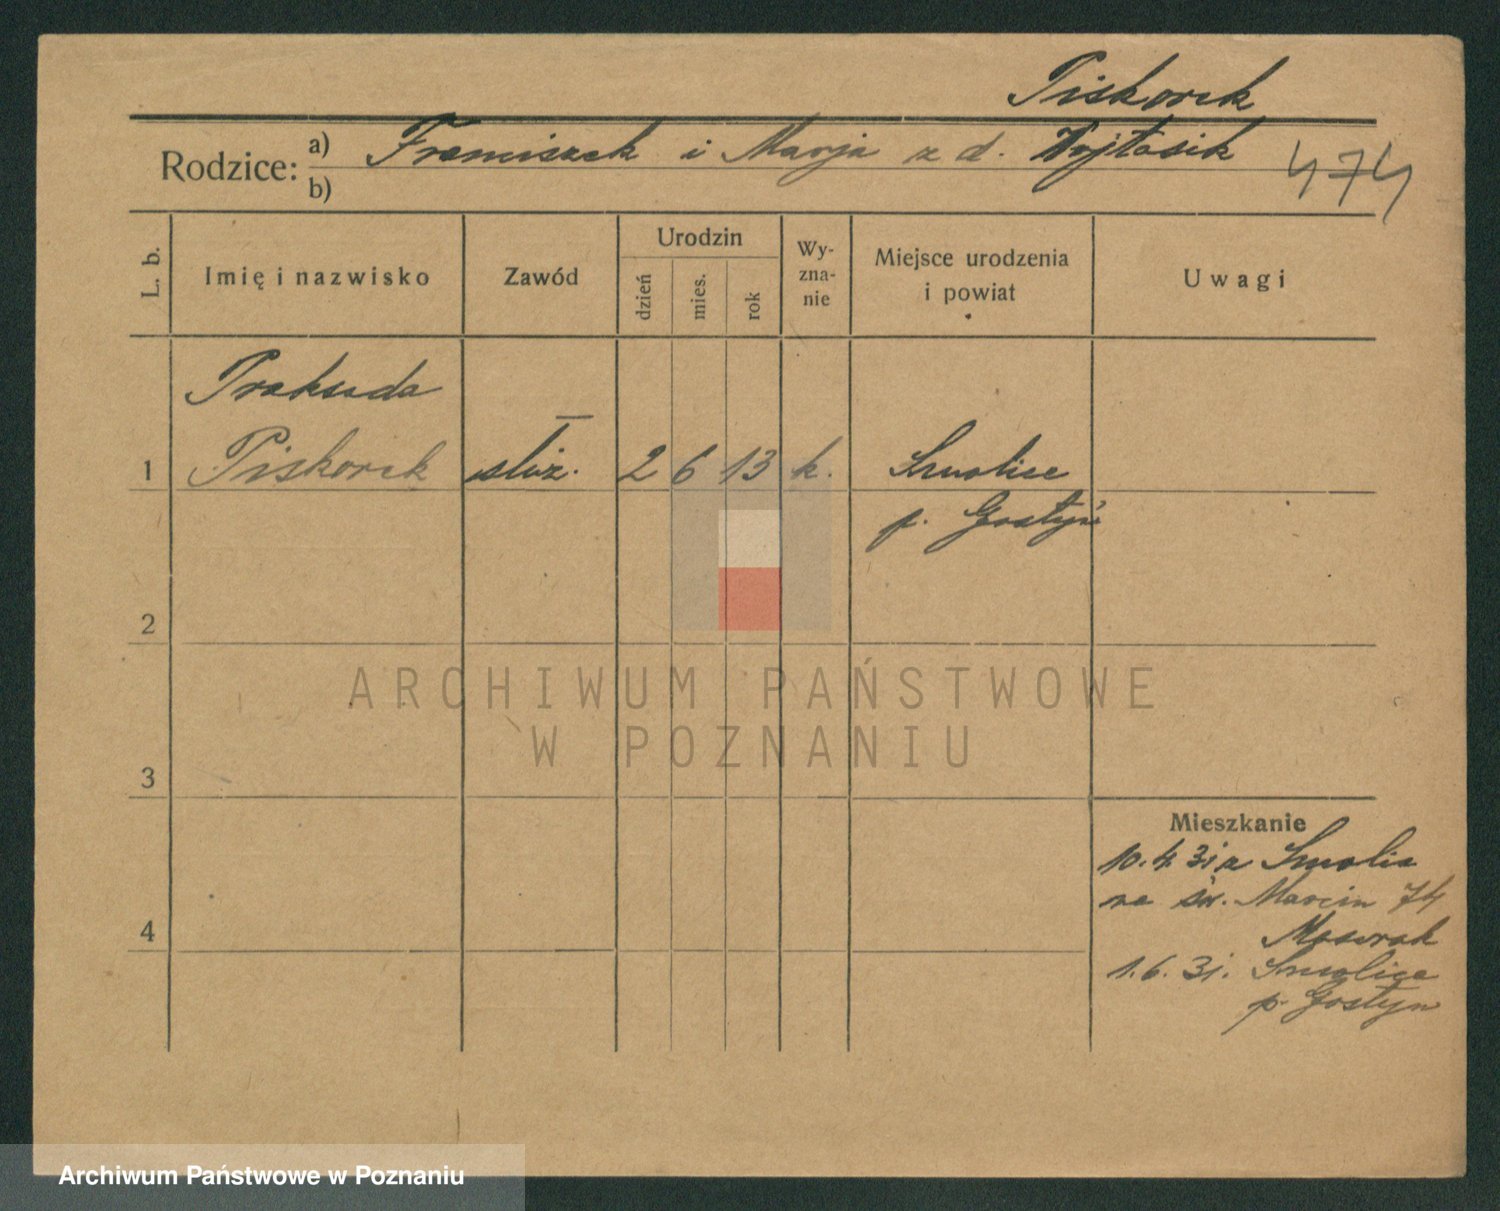 Piskorek
Rodzice: a) Franciszek i Marja z d. Wojtasik 474
b)
L. b. Imię i nazwisko Zawód Urodzin dzień mies. rok Wy-zna-nie Miejsce urodzenia i powiat Uwagi
Prakseda
1 Piskorek służ. 2 6 13 k. Smolice
p. Gostyń
2
ARCHIWUM PAŃSTWOWE
W POZNANIU
3
Mieszkanie
10.4.31 z Smolic
na św. Marcin 74
4
1.6.31. Smolice
p. Gostyn
Archiwum Państwowe w Poznaniu